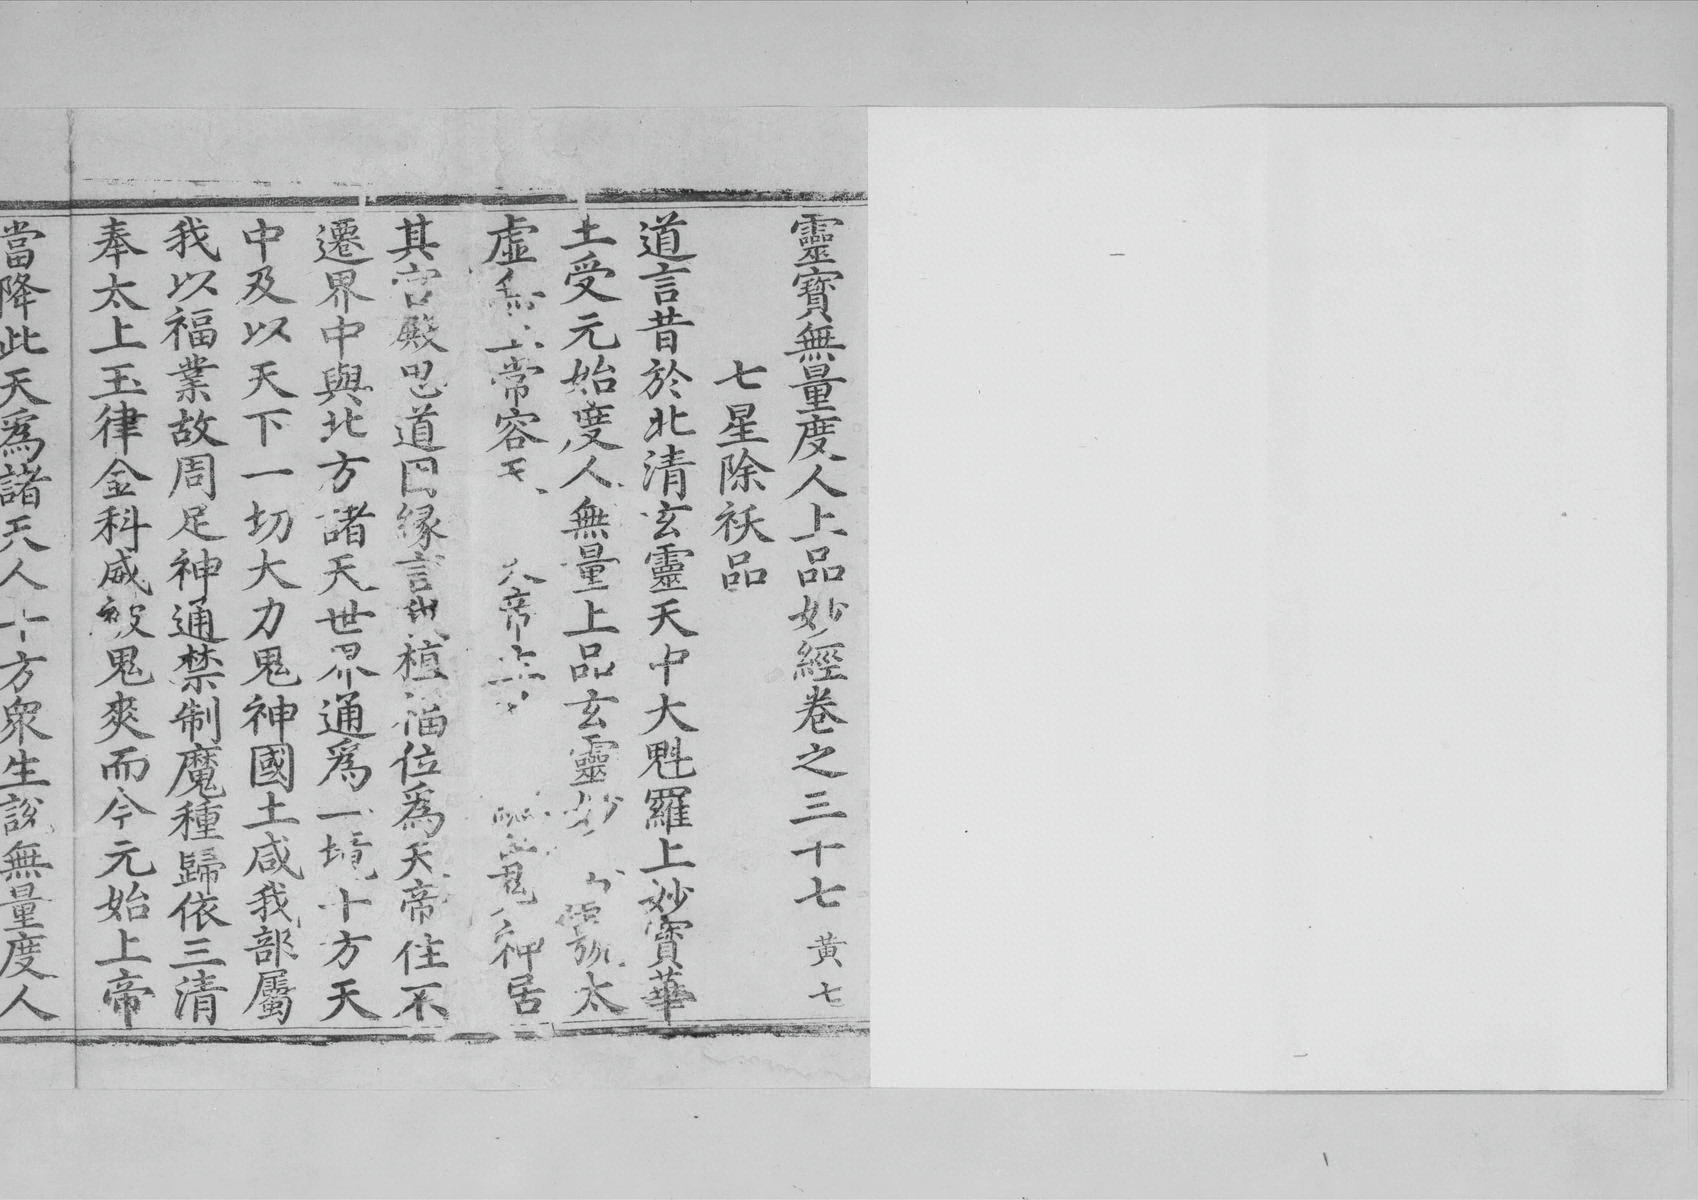 靈寶無量度人上品妙經卷之三十七 黃七
七星除祅品
道言昔於北清玄靈天中大魁羅上妙寶華
土受元始度人無量上品玄靈妙 號太
虛無上常容天 大帝 鬼神居
其宮殿思道因緣言說植福位爲天帝住不
遷界中與北方諸天世界通爲一境十方天
中及以天下一切大力鬼神國土咸我部屬
我以福業故周足神通禁制魔種歸依三清
奉太上玉律金科威被鬼爽而今元始上帝
當降此天爲諸天人十方衆生說無量度人